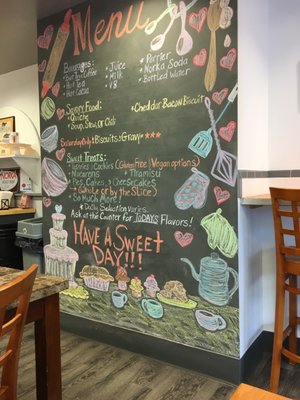 Menu
Beverages:
Hot Tea
Hot Cocoa
• Juice
• Milk
• V8
• Perrier
• Norka Soda
• Bottled Water
Savory Food:
• Quiche
• Soup, Stew, or Chili
• Cheddar Bacon Biscuit
Saturday Only: Biscuits & Gravy ***
Sweet Treats:
Cookies (Gluten Free / Vegan options)
• Macarons
• Tiramisu
• Pies, Cakes, Cheesecakes
(Whole or by the slice)
So much More!
• Daily Selection Varies
Ask at the Counter for TODAY'S Flavors!
HAVE A SWEET
DAY!!!